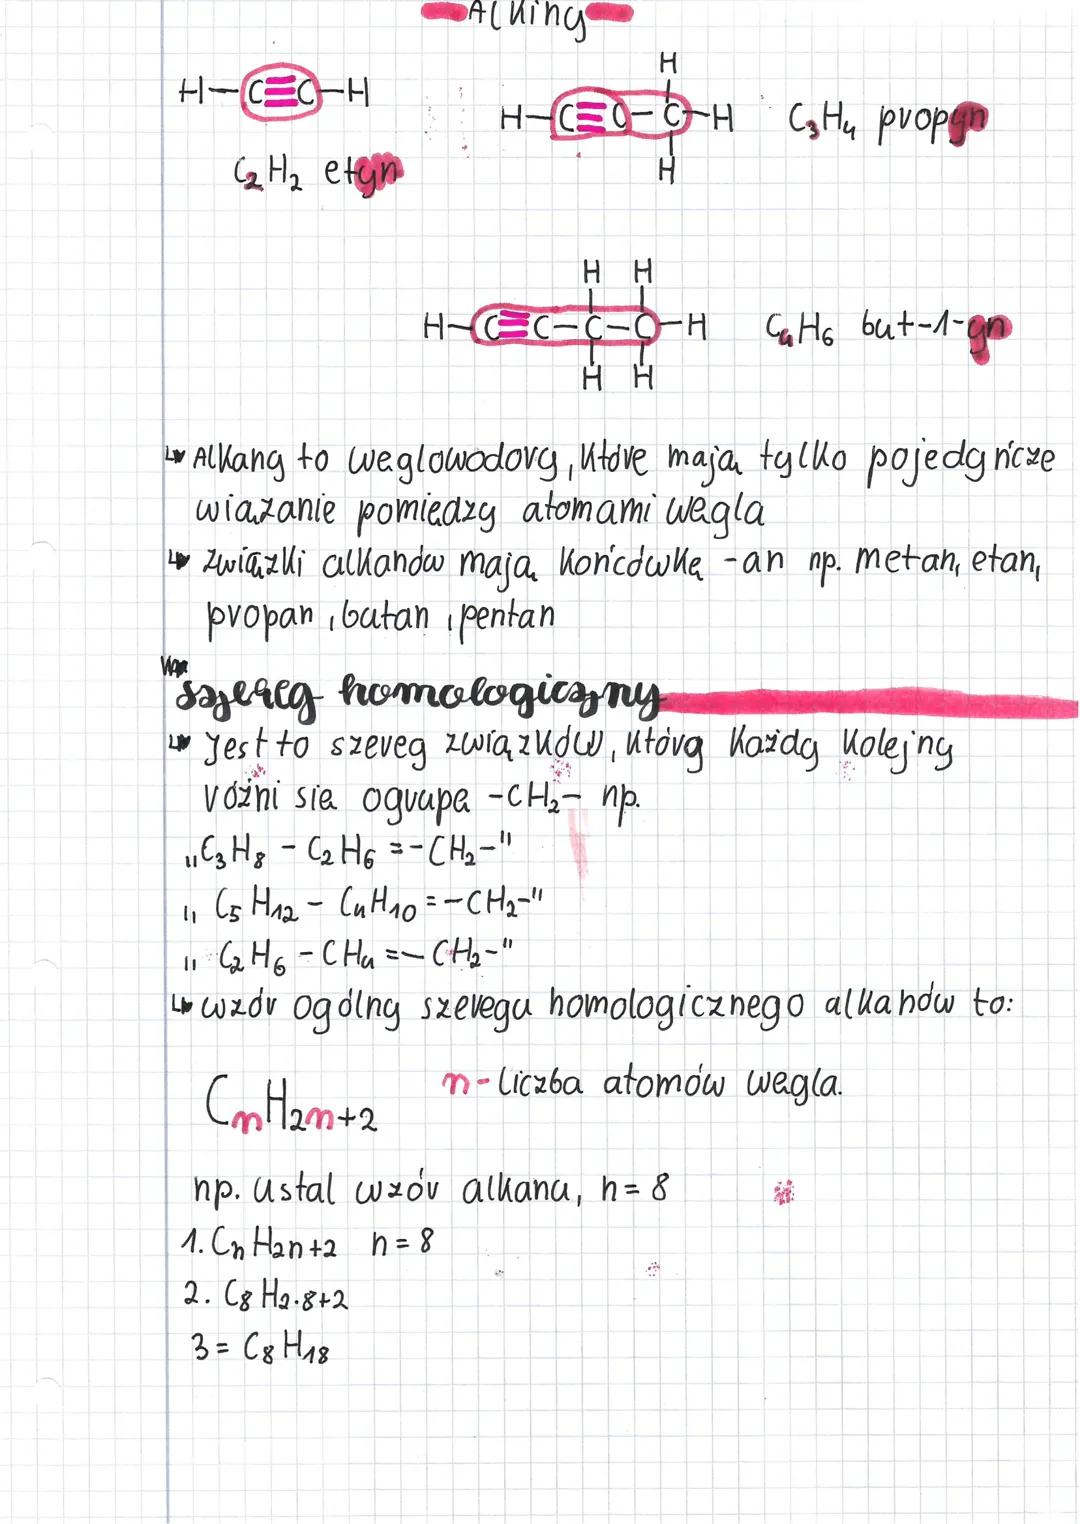 Alkiny
H-C≡C-H
C₂H₂ etyn
H
H-C≡C-C-H C₃H₄ propyn
H
H H
H-C≡C-C-C-H C₄H₆ but-1-yn
H H
↳ Alkany to węglowodory, które mają tylko pojedyńcze
wiązanie pomiędzy atomami węgla
↳ związki alkanów mają końcówkę -an np. metan, etan,
propan, butan, pentan
szereg homologiczny
↳ Jest to szereg związków, który każdy kolejny
różni się ogrupę -CH₂- np.
„C₃H₈ - C₂H₆ = -CH₂-"
„C₅H₁₂ - C₄H₁₀ = -CH₂-"
„C₂H₆ - CH₄ = -CH₂-"
↳ wzór ogólny szeregu homologicznego alkanów to:
CₙH₂ₙ₊₂ n - liczba atomów węgla.
np. Ustal wzór alkanu, n = 8
1. CₙH₂ₙ₊₂ n = 8
2. C₈H₂.₈₊₂
3 = C₈H₁₈